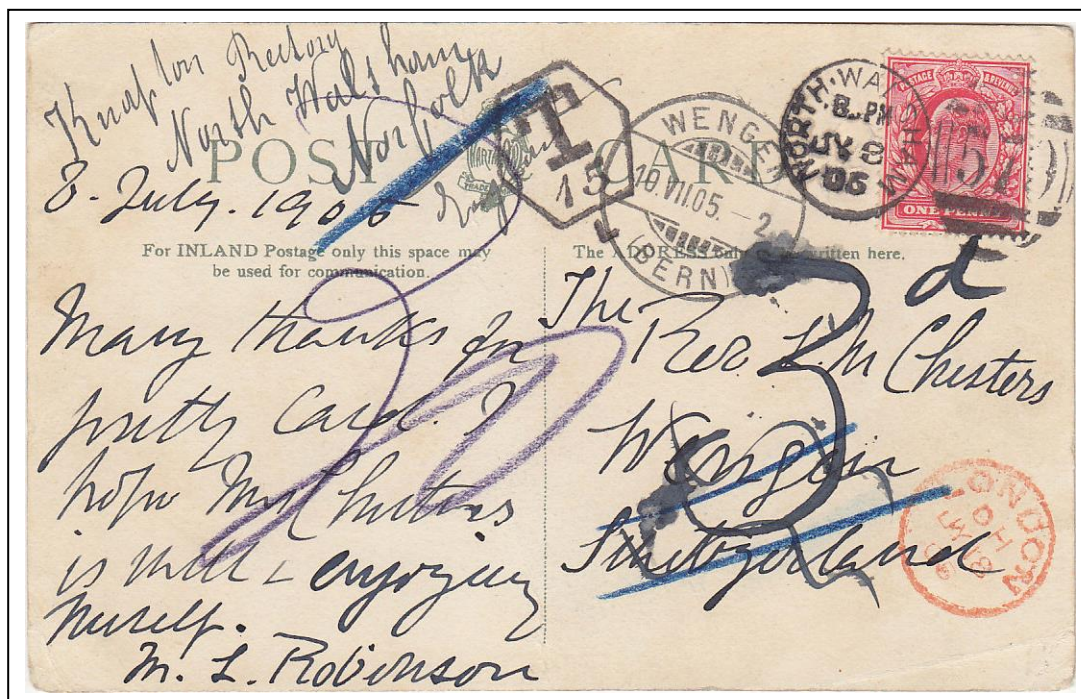 Knapton Rectory
North Walsham
Norfolk
England
8. July. 1905
POST CARD
T
15
WENGEN
10.VII.05.-2
(BERN)
NORTH·WALSHAM
8 PM
JY 8
05
570
POSTAGE & REVENUE
ONE PENNY
For INLAND Postage only this space may
be used for communication.
The ADDRESS only written here.
Many thanks for
pretty card. I
hope Mrs Chesters
is well & enjoying
herself.
M. L. Robinson
3d
20
The
Rev L. M Chesters
Wengen
Switzerland
LONDON